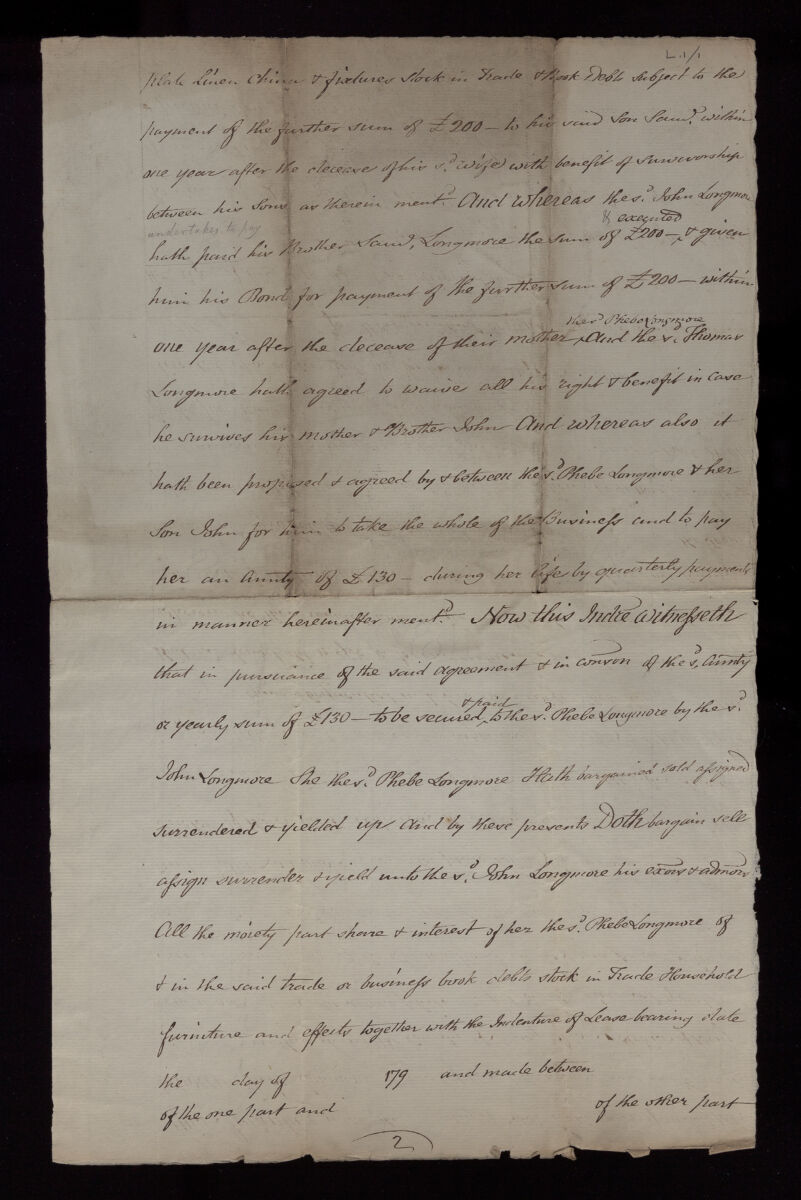 L.1/1
plate Linen China & fixtures Stock in Trade & Book Debts subject to the
payment of the further sum of £200 – to his said Son Saml. within
one year after the decease of his sd. wife with benefit of survivorship
between his Sons as therein mentd. And whereas the sd. John Longmore
undertakes to pay
& executed
hath paid his Brother Saml. Longmore the sum of £200 – & given
him his Bond for payment of the further sum of £200 – within
the sd. Phebe Longmore
one year after the decease of their mother And the sd. Thomas
Longmore hath agreed to waive all his right & benefit in case
he survives his mother & Brother John And whereas also it
hath been proposed & agreed by & between the sd. Phebe Longmore & her
Son John for him to take the whole of the Business and to pay
her an Annty of £130 – during her life by quarterly payments
in manner hereinafter mentd. Now this Indre witnesseth
that in pursuance of the said agreement & in conson of the sd. Annty
& paid
or yearly sum of £130 – to be secured to the sd. Phebe Longmore by the sd.
John Longmore She the sd. Phebe Longmore Hath bargained sold assigned
surrendered & yielded up And by these presents Doth bargain sell
assign surrender & yield unto the sd. John Longmore his exors & admors
All the moiety part share & interest of her the sd. Phebe Longmore of
& in the said trade or business book debts stock in Trade Household
furniture and effects together with the Indenture of Lease bearing date
the day of 179 and made between
of the one part and of the other part
2